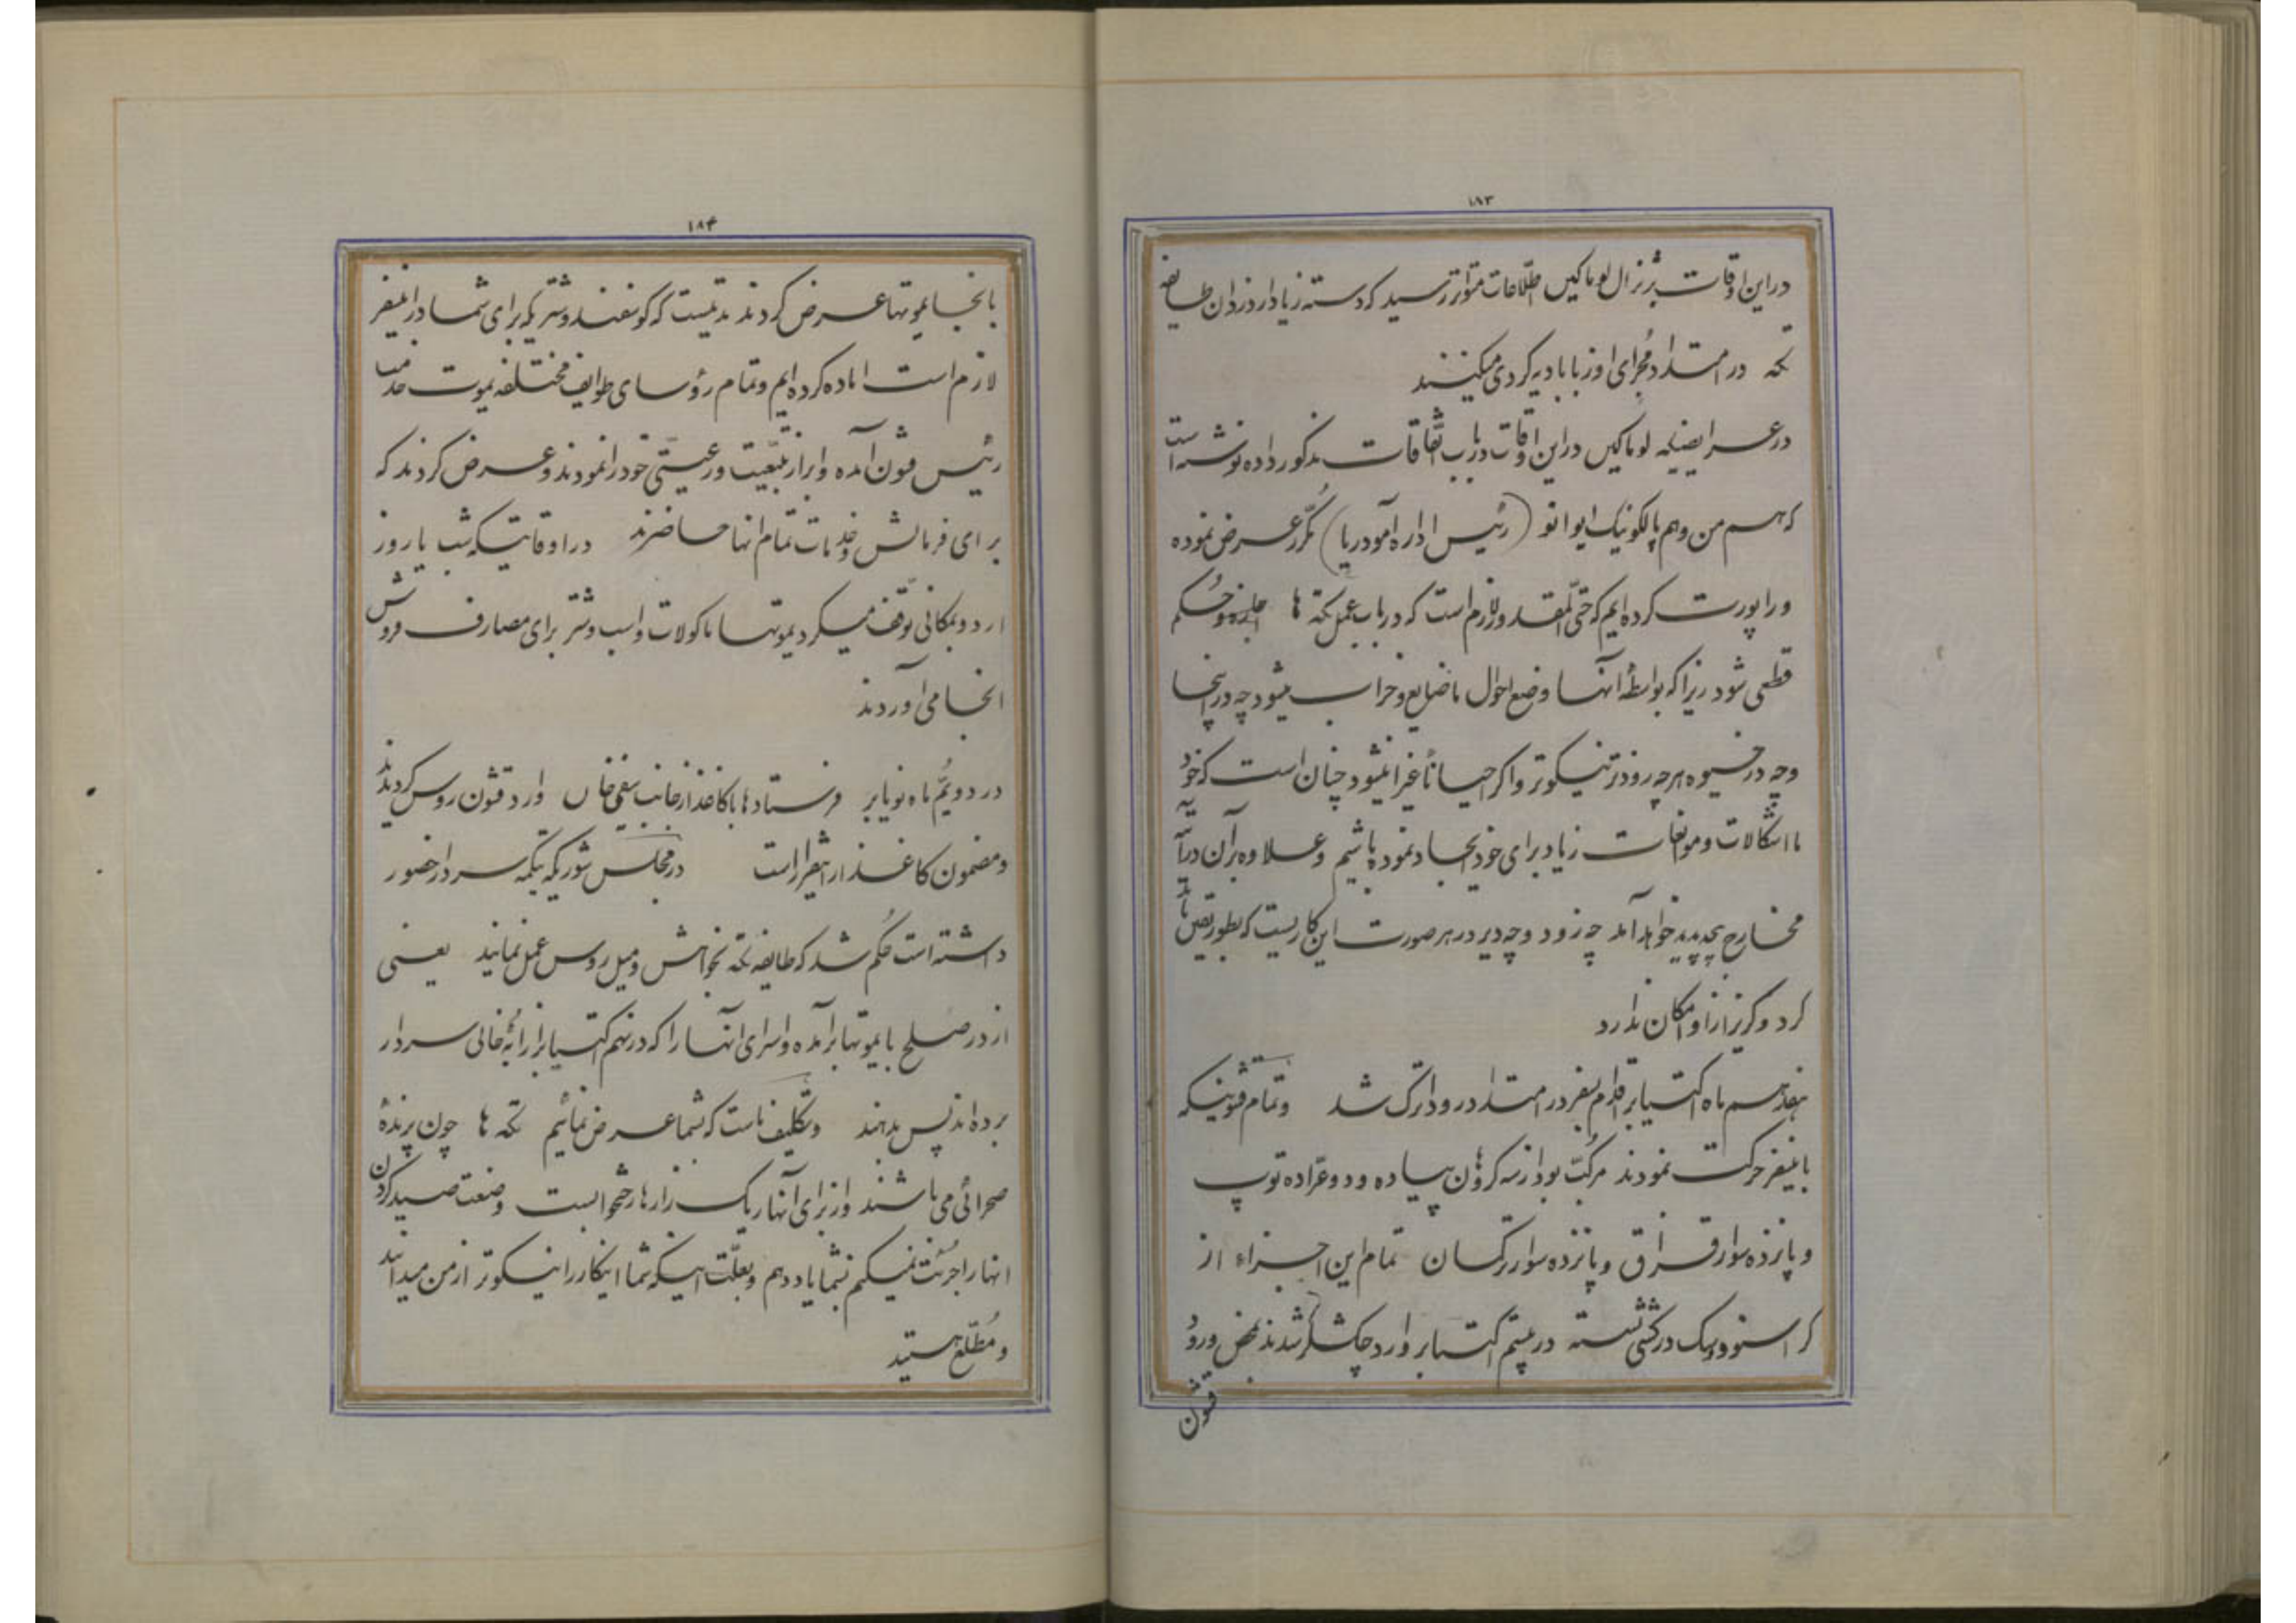 ۱۸۳
در این اوقات بژنرال لوماکین اطلاعات متواتر رسید که دسته زیاد از دزدان طایفه
تکه در امتداد مجرای اوزبای بادیه گردی میکنند
در عرایضیکه لوماکین در این اوقات در باب اتفاقات مذکور داده نوشته است
که هم من و هم پالکونیک ایوانو (رئیس اداره آمودریا) مکرر عرض نموده
و راپورت کرده ایم که حتی المقدور لازم است که در باب عمل تکه ها حکم
قطعی شود زیرا که بواسطهٔ آنها وضع احوال ما ضایع و خراب میشود چه در اینجا
و چه در خیوه هر چه زودتر نیکوتر و اگر احیاناً تاخیر میشود چنان است که خود
ما اشکالات و موانعات زیاد برای خود ایجاد نموده باشیم و علاوه بر آن در آتیه
مخارج پدید خواهد آمد چه زود و چه دیر در هر صورت این کاریست که بطور نقص باید
کرد و گریز از او امکان ندارد
هفدهم ماه اکتیابر اقدام بسفر در امتداد رود اترک شد و تمام قشونیکه
باین سفر حرکت نمودند مرکب بود از سه گروان پیاده و دو عراده توپ
و پانزده سوار قزاق و پانزده سوار ترکمان تمام این اجزاء از
کراسنوودسک در کشتی نشسته در بیستم اکتیابر وارد چکشلر شدند بمحض ورود
قشون
۱۸۴
بانجا یموتها عرض کردند مدتیست که گوسفند و شتریکه برای شما در این سفر
لازم است اماده کرده ایم و تمام رؤسای طوایف مختلفه یموت خدمت
رئیس قشون آمده و ابراز تبعیت و رعیتی خود را نمودند و عرض کردند که
برای فرمایش و خدمات تمام انها حاضرند در اوقاتیکه شب یا روز
اردو بمکانی توقف میکرد یموتها ماکولات و اسب و شتر برای مصارف فروش
انجا می آوردند
در دویم ماه نویابر فرستادها با کاغذ از جانب خان وارد قشون روس گردیدند
و مضمون کاغذ از اینقرار است در مجلس شوریکه تیکمه سردار حضور
داشته است حکم شد که طایفه تکه بخواهش و میل روس عمل نمایند یعنی
از در صلح با یموتها برآمده و اسرای آنها را که در نهم اکتیابر از رابهٔ خانی سردار
برده اند پس بدهند و تکلیف ماست که بشما عرض نمائیم تکه ها چون پرندهٔ
صحرائی می باشند و از برای آنها ریک زارها رختخوابست و صنعت صید کردن
انها را جرئت نمیکنم بشما یاد دهم و بعلت اینکه شما اینکار را نیکوتر از من میدانید
و مطلع هستید